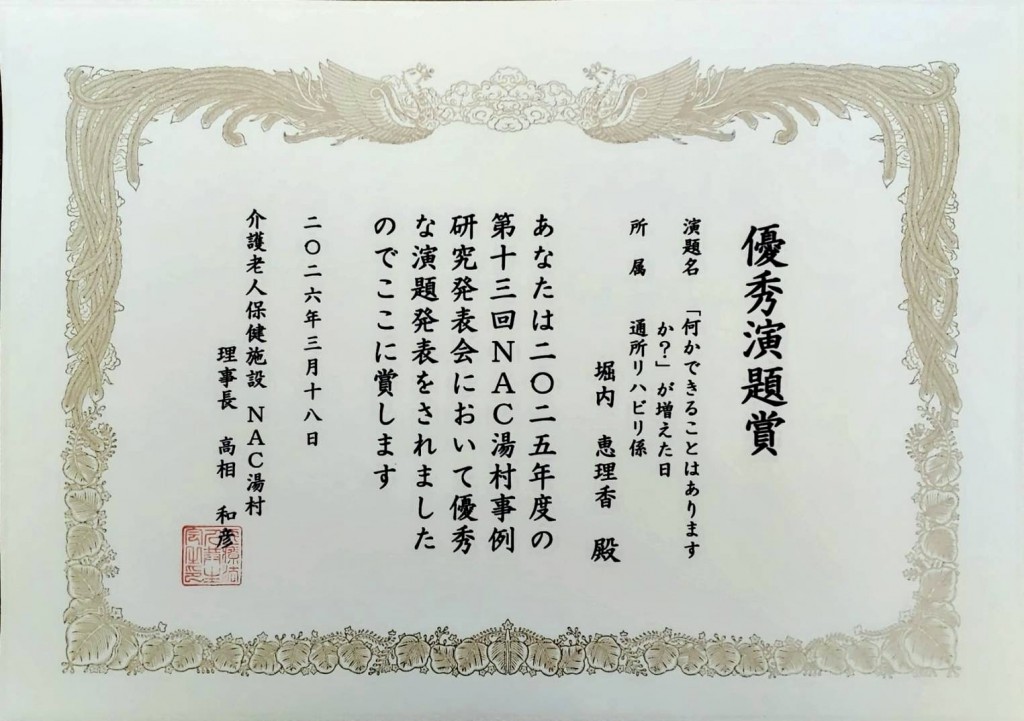 優秀演題賞
演題名 「何かできることはあります
か？」が増えた日
所属 通所リハビリ係
堀内 恵理香 殿
あなたは二〇二五年度の
第十三回ＮＡＣ湯村事例
研究発表会において優秀
な演題発表をされました
のでここに賞します
二〇二六年三月十八日
介護老人保健施設 ＮＡＣ湯村
理事長 高相 和彦